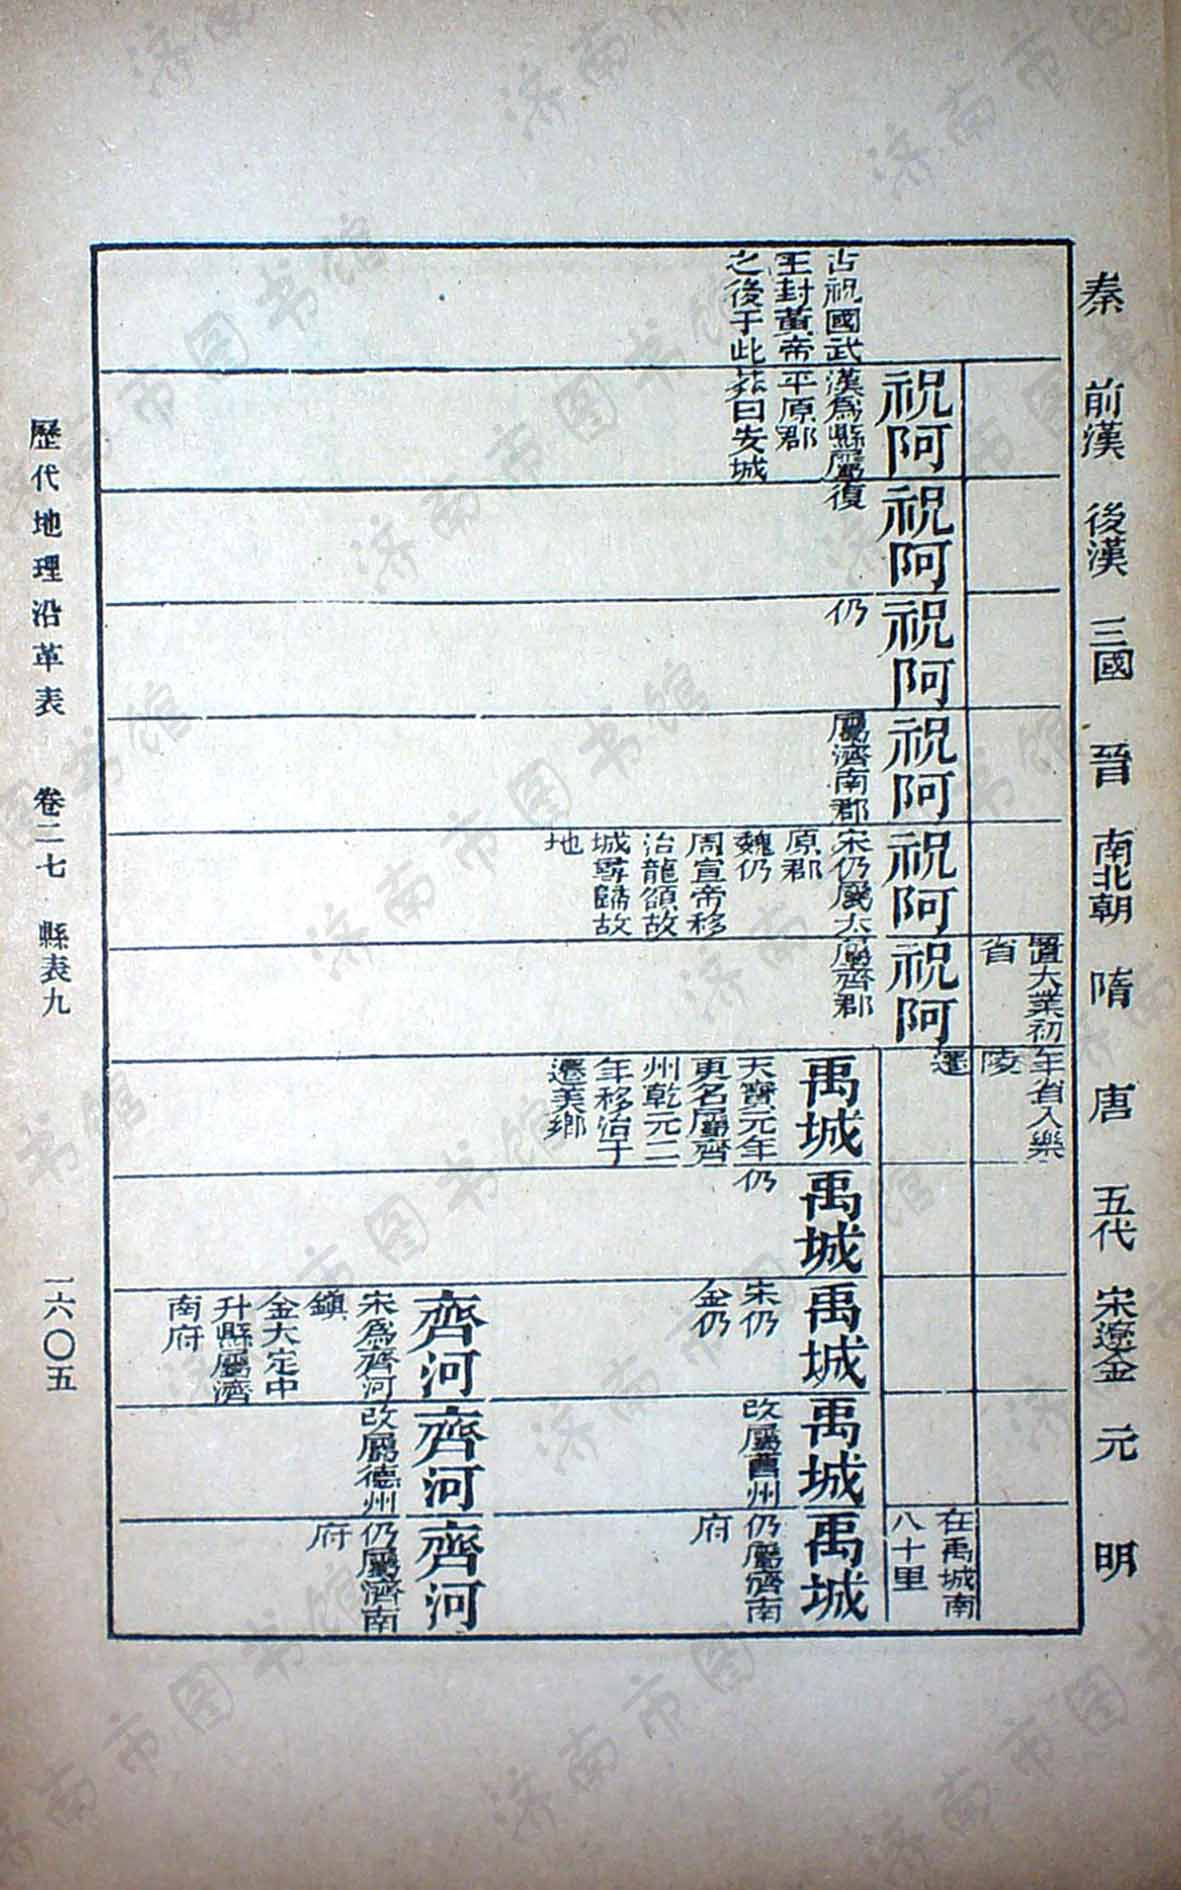 秦 前漢 後漢 三國 晉 南北朝 隋 唐 五代 宋遼金 元 明
置大業初
省
年省入樂
陵
還
在禹城南
八十里
古祝國武
王封黃帝
之後于此
祝阿
漢爲縣屬
平原郡
莽曰安城
祝阿
復
祝阿
仍
祝阿
屬濟南郡
祝阿
宋仍屬太
原郡
魏仍
周宣帝移
治龍頟故
城尋歸故
地
祝阿
屬齊郡
禹城
天寶元年
更名屬齊
州乾元二
年移治于
遷善鄉
禹城
仍
禹城
宋仍
金仍
禹城
改屬曹州
禹城
仍屬濟南
府
齊河
宋爲齊河
鎮
金大定中
升縣屬濟
南府
齊河
改屬德州
齊河
仍屬濟南
府
歷代地理沿革表 卷二七 縣表九 一六〇五
济南市图书馆